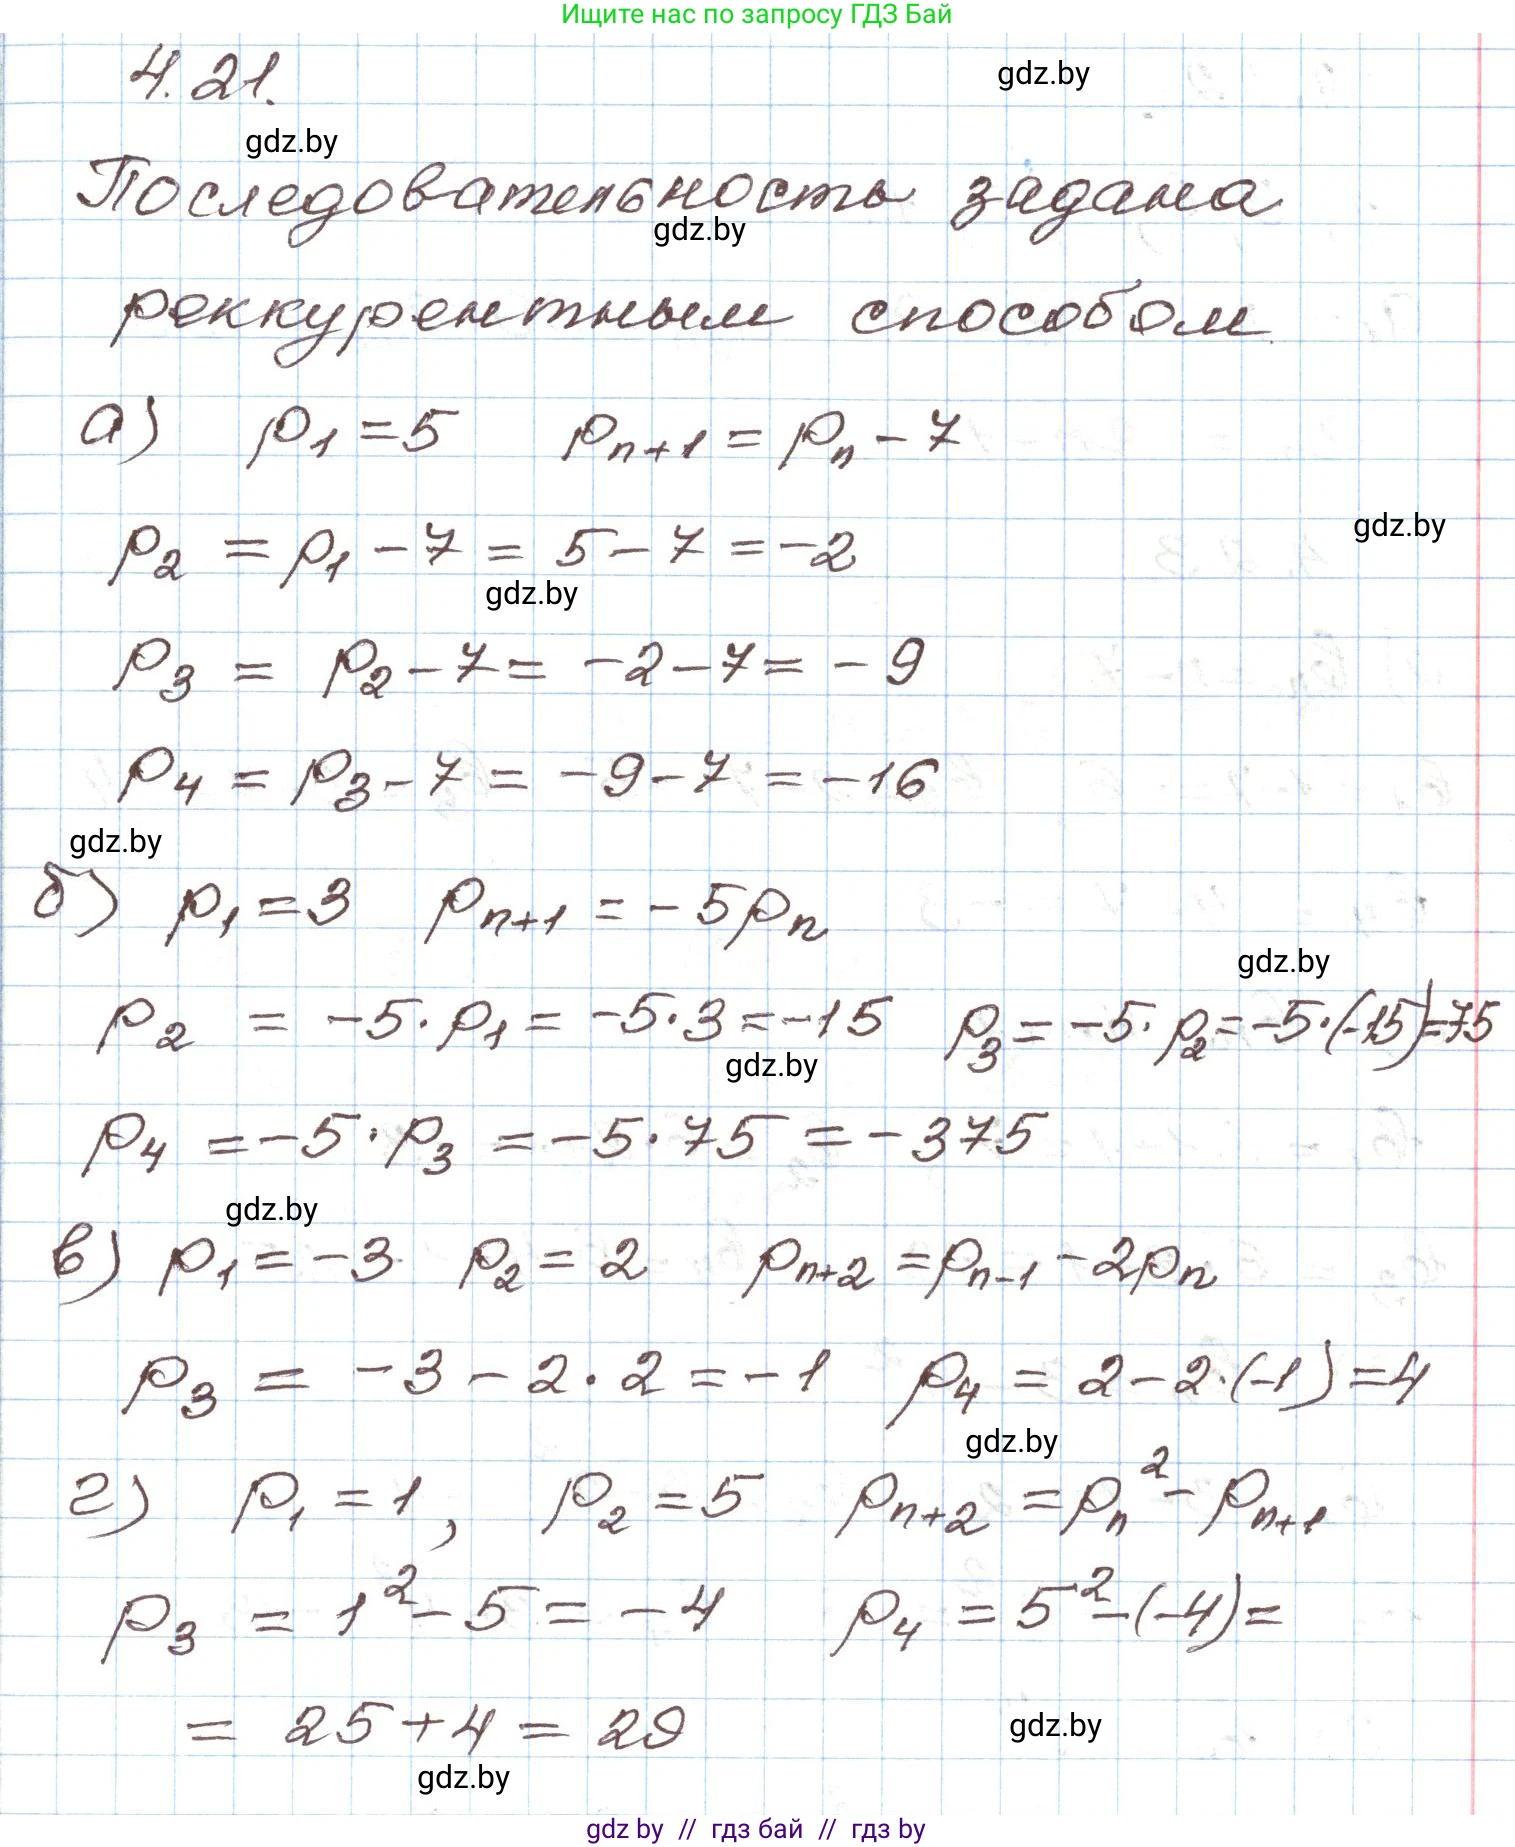 Ищите нас по запросу ГДЗ Бай
4.21.
gdz.by
gdz.by
Последовательность задана
gdz.by
реккурентным способом
а) p₁ = 5 pₙ₊₁ = pₙ - 7
p₂ = p₁ - 7 = 5 - 7 = -2
gdz.by
gdz.by
p₃ = p₂ - 7 = -2 - 7 = -9
p₄ = p₃ - 7 = -9 - 7 = -16
gdz.by
б) p₁ = 3 pₙ₊₁ = -5pₙ
gdz.by
p₂ = -5 · p₁ = -5 · 3 = -15 p₃ = -5 · p₂ = -5 · (-15) = 75
gdz.by
p₄ = -5 · p₃ = -5 · 75 = -375
gdz.by
в) p₁ = -3 p₂ = 2 pₙ₊₂ = pₙ₋₁ - 2pₙ
p₃ = -3 - 2 · 2 = -1 p₄ = 2 - 2 · (-1) = 4
gdz.by
г) p₁ = 1, p₂ = 5 pₙ₊₂ = pₙ² - pₙ₊₁
p₃ = 1² - 5 = -4 p₄ = 5² - (-4) =
= 25 + 4 = 29
gdz.by
gdz.by
gdz by // гдз бай // гдз by